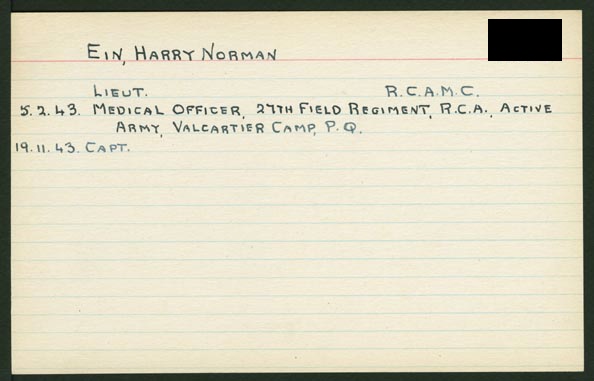 EIN, HARRY NORMAN
LIEUT. R.C.A.M.C.
5.2.43. MEDICAL OFFICER, 27TH FIELD REGIMENT, R.C.A., ACTIVE
ARMY, VALCARTIER CAMP, P.Q.
19.11.43. CAPT.